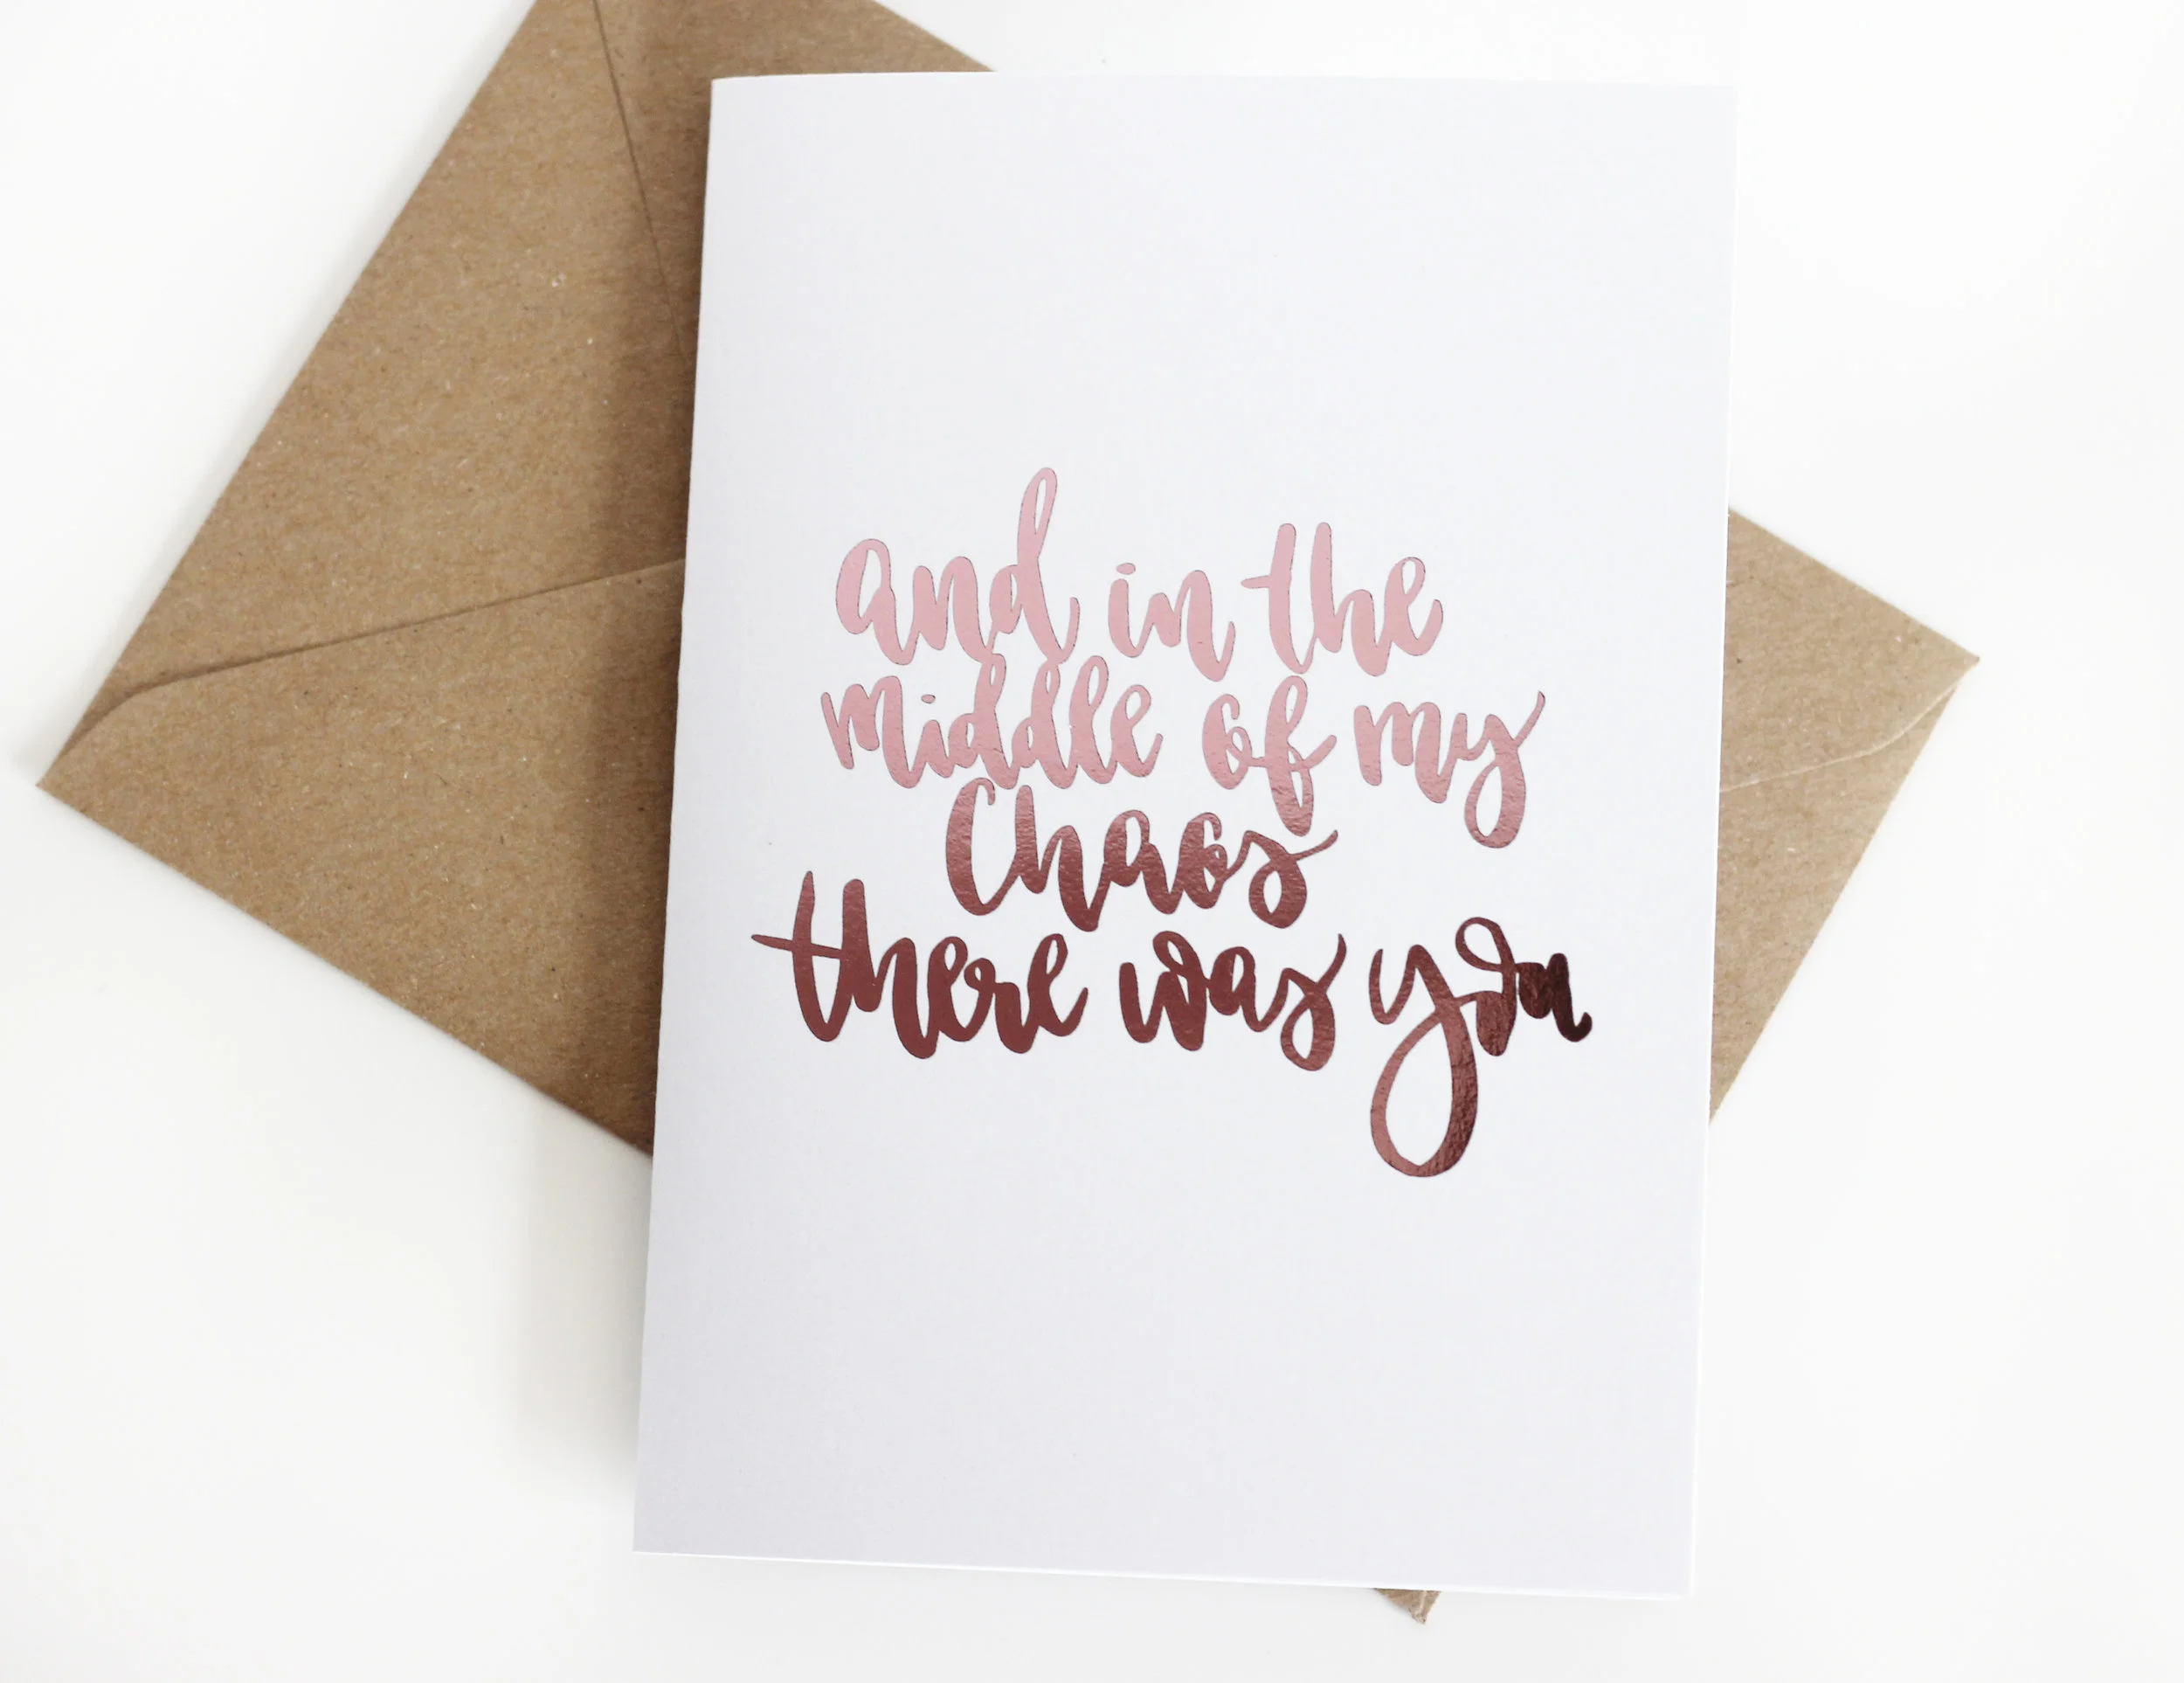 and in the
middle of my
Chaos
there was you